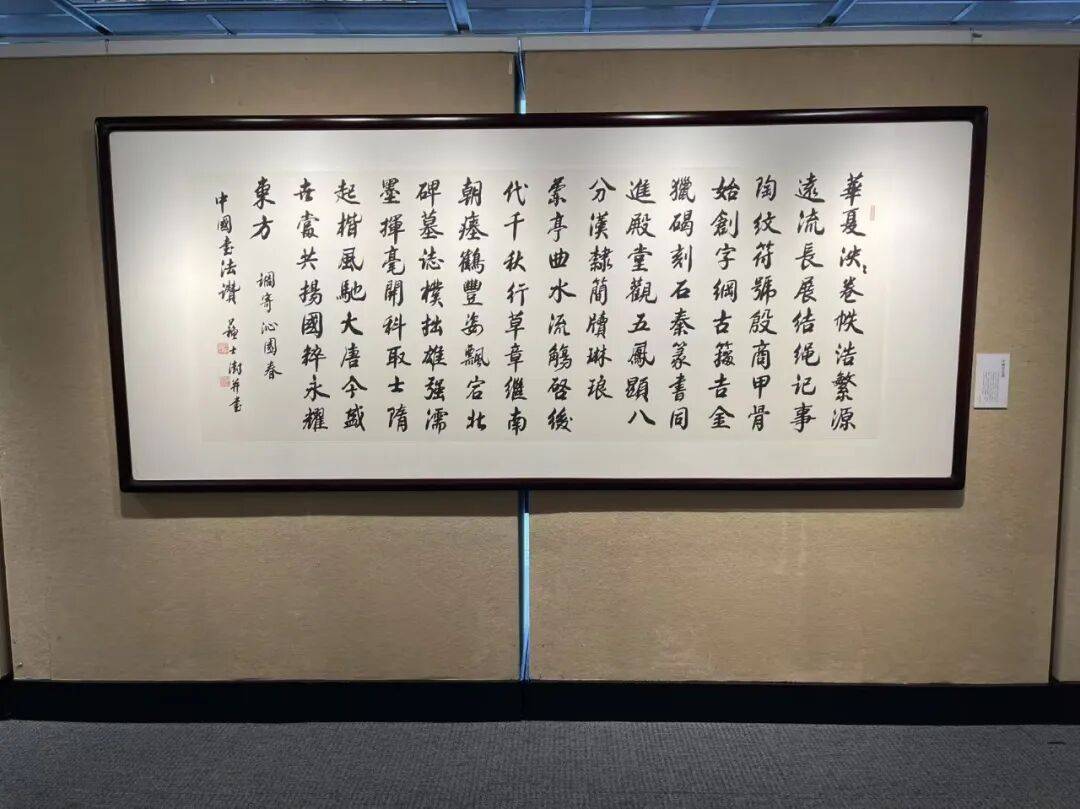 華夏泱々卷帙浩繁源
遠流長展结绳记事
陶纹符號殷商甲骨
始創字綱古籀吉金
獵碣刻石秦篆書同
進殿堂觀五鳳顕八
分漢隸簡牘琳琅
蘭亭曲水流觴啓後
代千秋行草章継南
朝瘞鶴豐姿飄宕北
碑墓誌樸拙雄强濡
墨揮毫開科取士隋
起楷風馳大唐今盛
世當共揚國粹永耀
東方
調寄沁園春
中國書法讚 蘇士澍并書